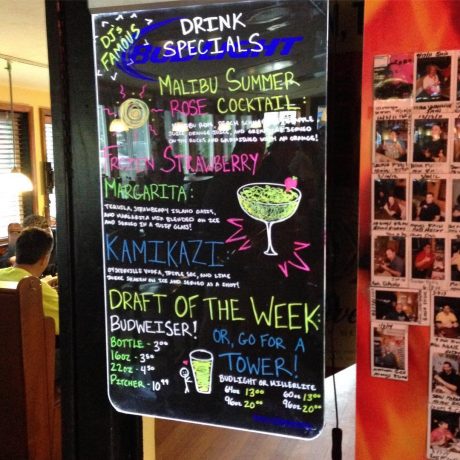 DJ's
FAMOUS
DRINK
SPECIALS
BUD LIGHT
MALIBU SUMMER
ROSE COCKTAIL:
JUICE, ORANGE JUICE, AND
ON THE ROCKS AND GARNISHED WITH AN ORANGE!
FROZEN STRAWBERRY
MARGARITA:
TEQUILA, STRAWBERRY ISLAND OASIS,
AND MARGARITA MIX BLENDED ON ICE
AND SERVED IN A TULIP GLASS!
KAMIKAZI:
VODKA, TRIPLE SEC, AND LIME
JUICE SHAKEN ON ICE AND SERVED AS A SHOT!
DRAFT OF THE WEEK:
BUDWEISER!
BOTTLE - 3.00
16oz - 3.50
22oz - 4.50
PITCHER - 10.99
OR, GO FOR A
TOWER!
BUDLIGHT OR MILLERLITE
64oz 13.00 60oz 13.00
96oz 20.00 96oz 20.00